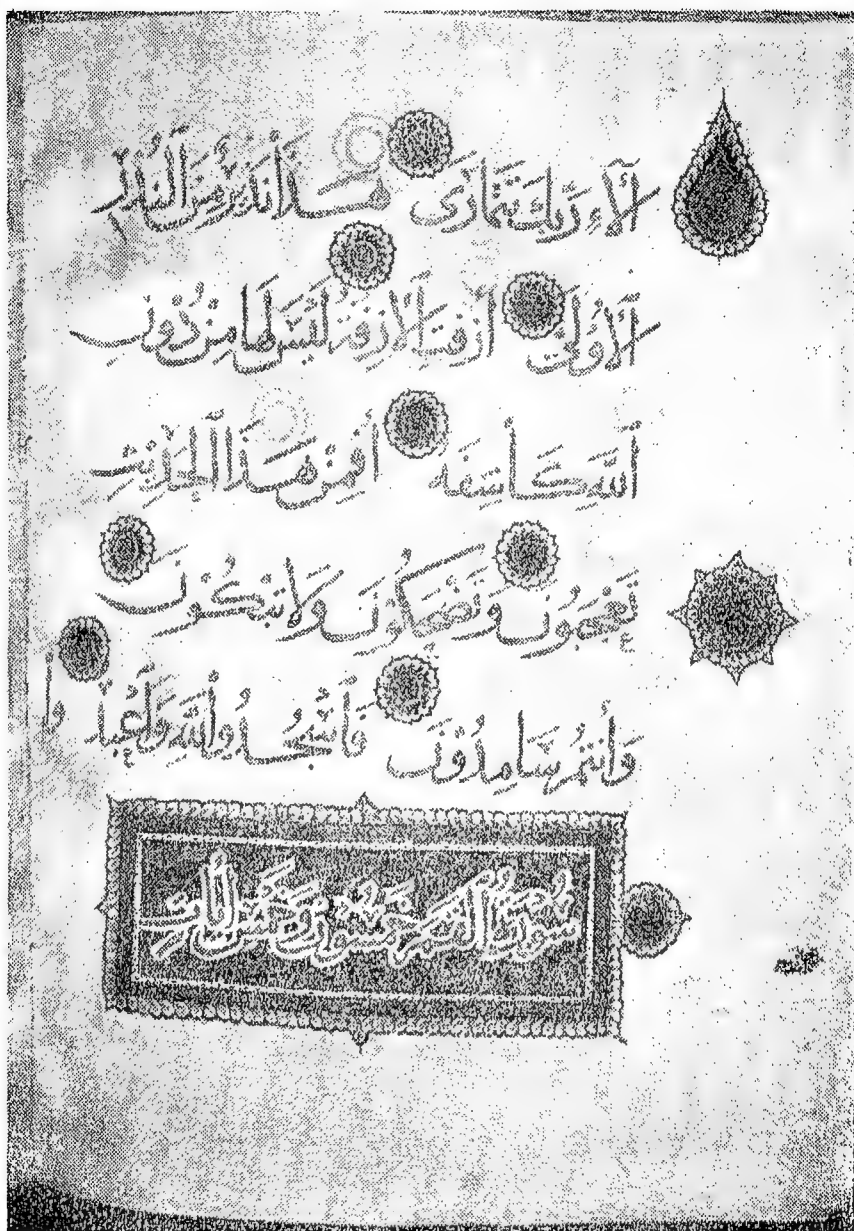 آلَاءِ رَبِّكَ تَتَمَارَى هَٰذَا نَذِيرٌ مِنَ النُّذُرِ
الْأُولَى أَزِفَتِ الْآزِفَةُ لَيْسَ لَهَا مِنْ دُونِ
اللَّهِ كَاشِفَة أَفَمِنْ هَٰذَا الْحَدِيثِ
تَعْجَبُونَ وَتَضْحَكُونَ وَلَا تَبْكُونَ
وَأَنْتُمْ سَامِدُونَ فَاسْجُدُوا لِلَّهِ وَاعْبُدُوا
سورة القمر خمسون وخمس آيات